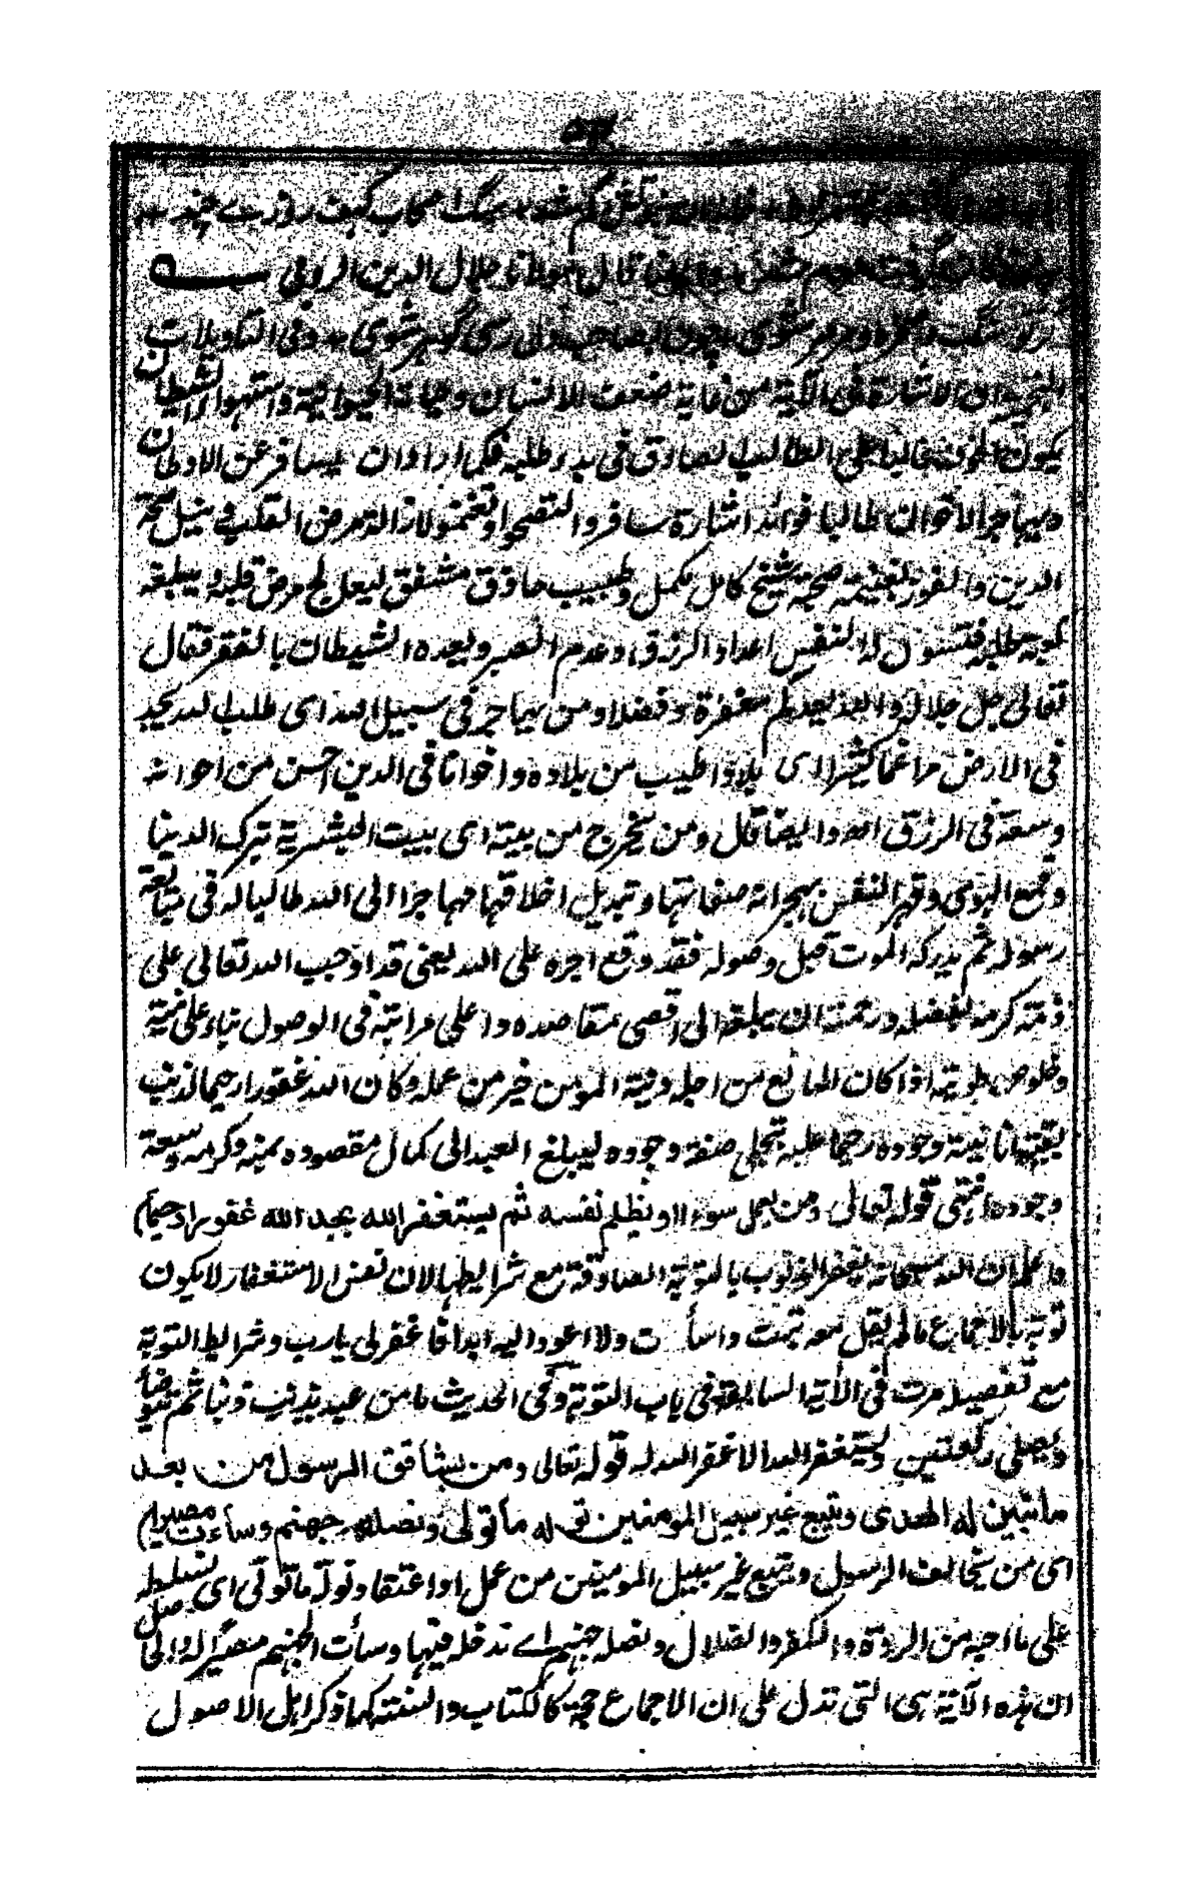 گم شد سگ اصحاب کهف روزے چند
قال مولانا جلال الدین الرومی
گر تو سنگ و صخره و مرمر شوی چون بصاحبدل رسی گوهر شوی وفی التاویلات
الاشارة فی الآیة من غایة ضعف الانسان وحیاة الحیوانیة واستهواء الشیطان
یکون الخوف غالبا علی الطالب الصادق فی بدء طلبه فکما اراد ان یسافر عن الاوطان
ویهاجر الاخوان طالبا فوائد اشارة سافروا لتصحوا وتغنموا لازالة مرض القلب فی نیل صحة
الدین والفوز لغنیمة صحبة شیخ کامل مکمل وطبیب حاذق مشفق لیعالج مرض قلبه ویبلغه
کعبة طلبه فتسول له النفس اعداد الرزق وعدم الصبر ویعده الشیطان بالفقر فقال
تعالی جل جلاله والله یعدکم مغفرة وفضلا ومن یهاجر فی سبیل الله ای طلب الله یجد
فی الارض مراغما کثیرا ای بلادا اطیب من بلاده واخوانا فی الدین احسن من اخوانه
وسعة فی الرزق الله وایضا قال ومن یخرج من بیته ای بیت البشریة بترک الدنیا
وقمع الهوی وقهر النفس بهجرانه صفاتها وتبدیل اخلاقها مهاجرا الی الله طالبا له فی متابعة
رسوله ثم یدرکه الموت قبل وصوله فقد وقع اجره علی الله یعنی قد اوجب الله تعالی علی
ذمة کرمه لفضله ورحمته ان یبلغه الی اقصی مقاصده واعلی مراتبه فی الوصول بناء علی نیة
وخلوص طویته اذا کان المانع من اجله ونیة المومن خیر من عمله وکان الله غفورا رحیما لذنب
بقیة انانیة وجوده رحیما علیه بتجلی صفة وجوده لیبلغ العبد الی کمال مقصوده بمنه وکرمه وسعة
وجوده انتهی قوله تعالی ومن یعمل سوءا او یظلم نفسه ثم یستغفر الله یجد الله غفورا رحیما)
واعلم ان الله سبحانه یغفر الذنوب بالتوبة الصادقة مع شرایطها لان نفس الاستغفار لا یکون
توبة بالاجماع مالم یقل معه تبت واسأت ولا اعود الیه ابدا فاغفرلی یارب وشرایط التوبة
مع تفصیله مرت فی الآیة السابقة فی باب التوبة وفی الحدیث ما من عبد یذنب ذنبا ثم یتوضأ
ویصلی رکعتین ویستغفر الله الا غفر الله له قوله تعالی ومن یشاقق الرسول من بعد
ما تبین له الهدی ویتبع غیر سبیل المومنین نوله ما تولی ونصله جهنم وساءت مصیرا)
ای من یخالف الرسول ویتبع غیر سبیل المومنین من عمل او اعتقاد نوله ما تولی ای نسلطه
علی ما احبه من الردة والکفر والضلال ونصله جهنم اے ندخله فیها وسأت الجهنم مصیرا له والحاصل
ان هذه الآیة هی التی تدل علی ان الاجماع حجة کالکتاب والسنة کما ذکر اهل الاصول